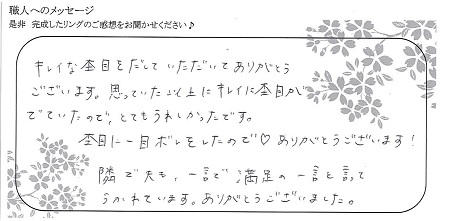 職人へのメッセージ
是非 完成したリングのご感想をお聞かせください♪
キレイな杢目をだしていただいてありがとう
ございます。思っていた以上にキレイに杢目が
でていたので、とてもうれしかったです。
杢目に一目ボレをしたので♡ありがとうございます!
隣で夫も、一言で満足の一言と言って
うかれています。ありがとうございました。